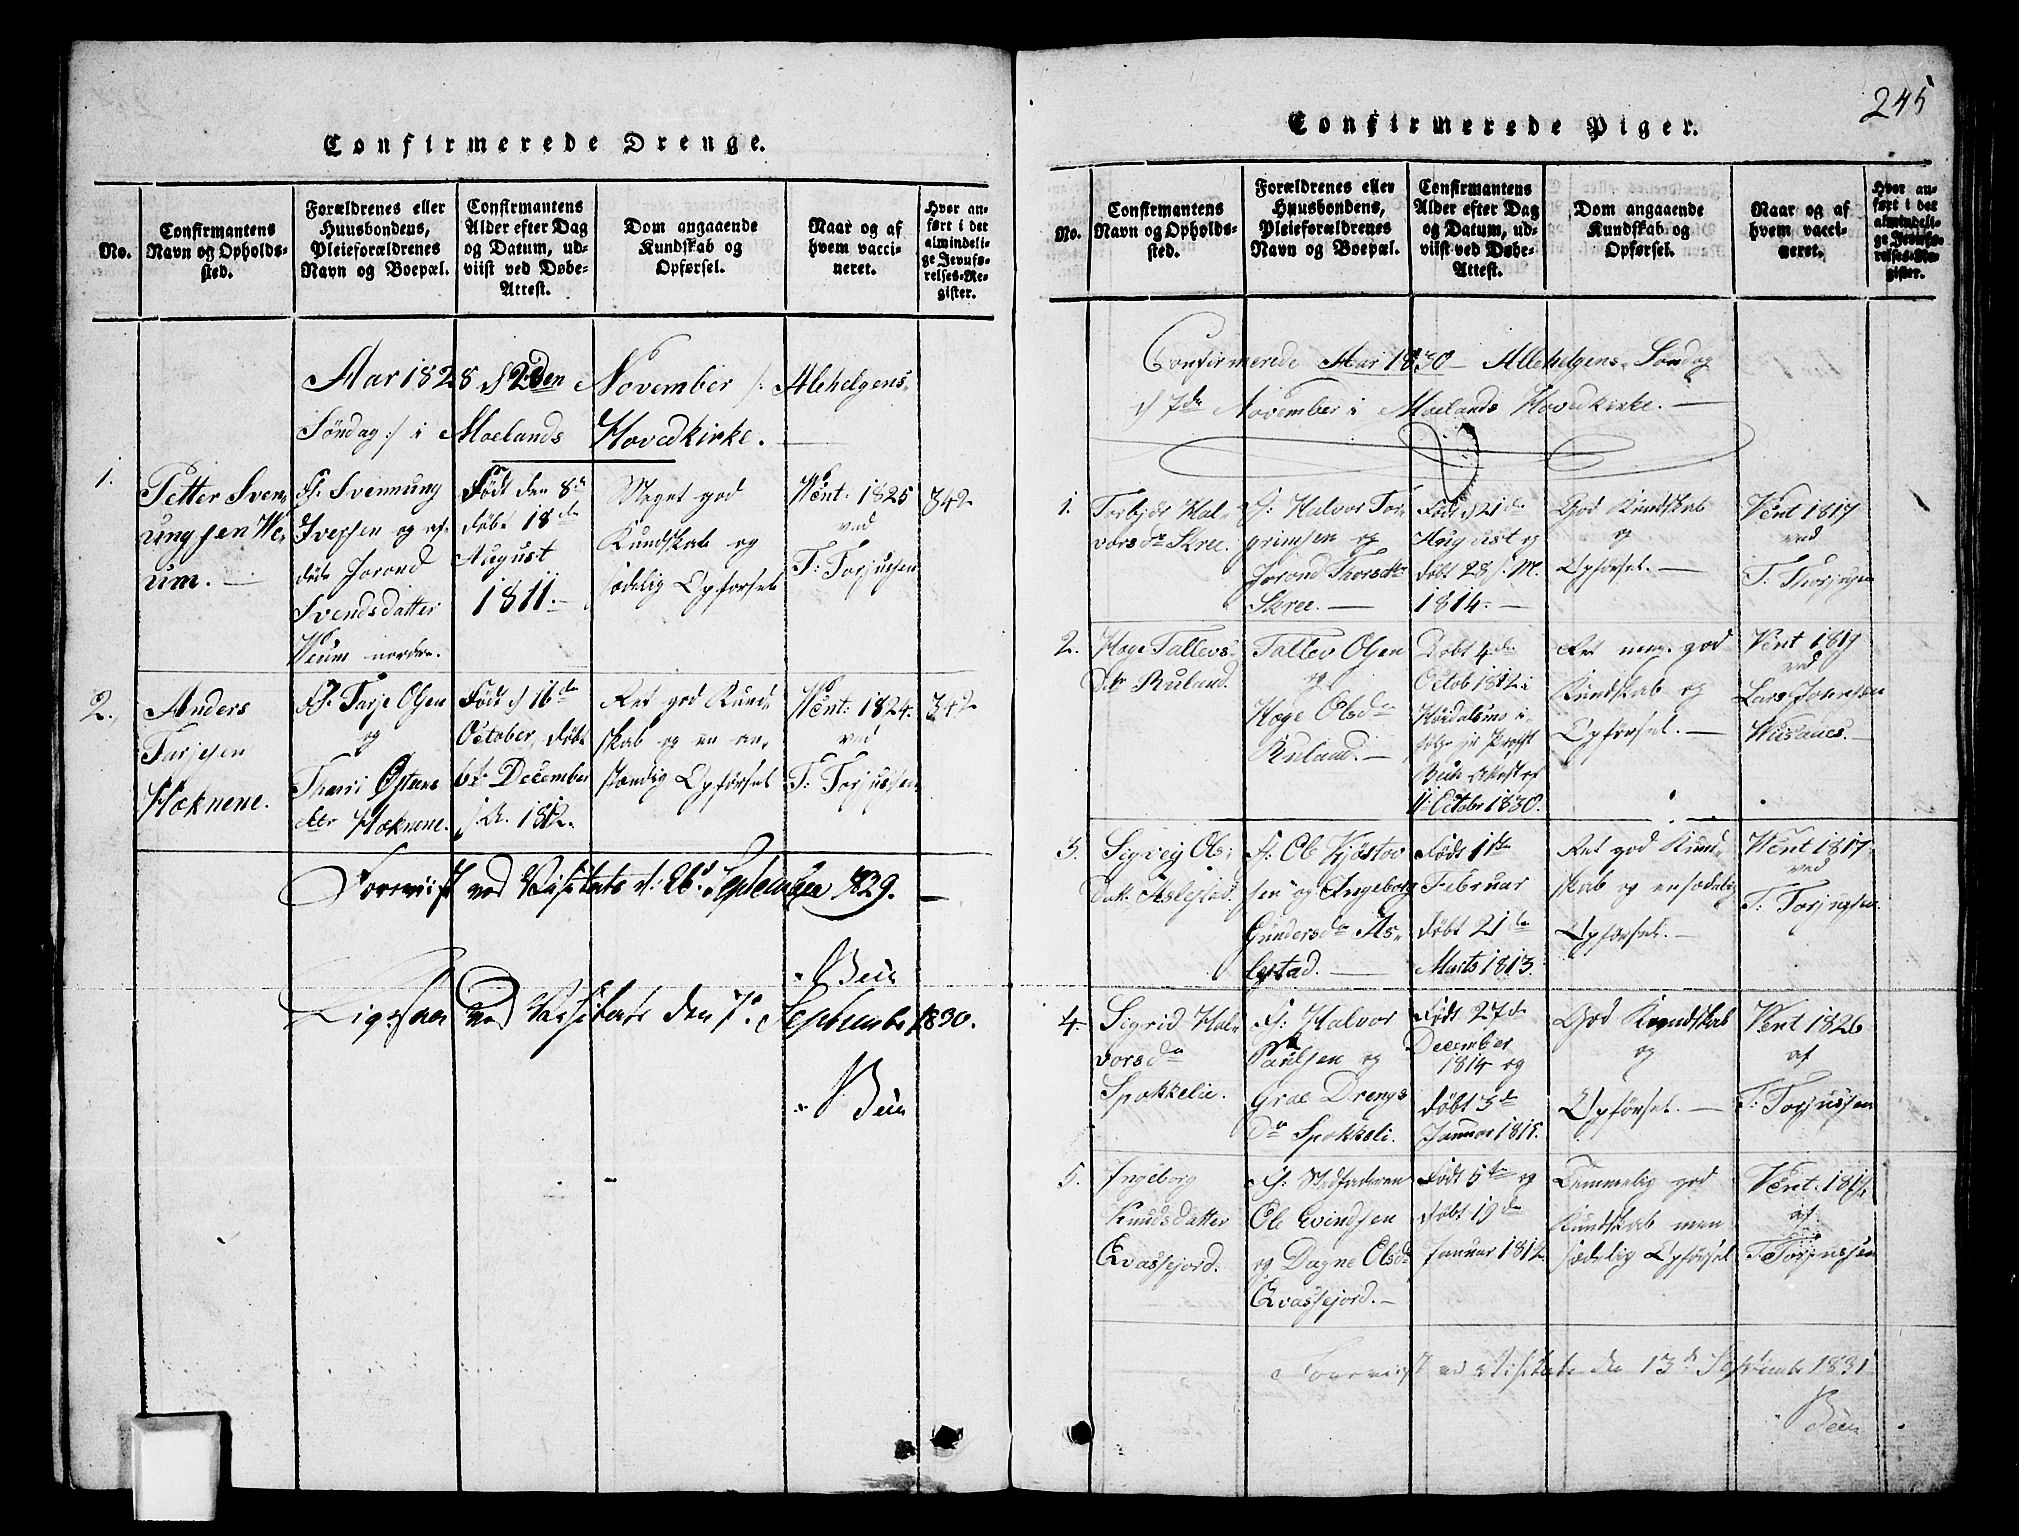 Confirmerede Drenge.
No.
Confirmantens
Navn og Opholds-
sted.
Forældrenes eller
Huusbondens,
Pleieforældrenes
Navn og Boepæl.
Confirmantens
Alder efter Dag
og Datum, ud-
viist ved Døbe-
Attest.
Dom angaaende
Kundskab og
Opførsel.
Naar og af
hvem vacci-
neret.
Hvor an-
ført i det
almindeli-
ge Jevnfø-
relses-Re-
gister.
Aar 1828 d. 2den November /: Alehelgens-
Søndag :/ i Moelands Hovedkirke.
1.
Petter Sven
ungsen We-
um. —
F. Svennung
Iversen og af-
døde Jorond
Svendsdatter
Weum nordre.
Født den 8de
døbt 18de
August
1811. —
Meget god
Kundskab og
sædelig Opførsel
Vent: 1825
ved
T: Torjussen
342
2.
Anders
Tarjesen
Hæknene.
F: Tarje Olsen
og
Thori Østens
dtr Hæknene.
Født d 16de
October, døbt
6t December
s. A. 1812.
Ret god Kund-
skab og en an-
stændig Opførsel
Vent: 1824.
ved
T: Torjussen
342
Foreviist ved Visitats d: September 1829. —
Bein
Ligesaa ved Visitats den 7de September 1830.
Bein
245
Confirmerede Piger.
No.
Confirmantens
Navn og Opholds-
sted.
Forældrenes eller
Huusbondens,
Pleieforældrenes
Navn og Boepæl.
Confirmantens
Alder efter Dag
og Datum, ud-
viist ved Døbe-
Attest.
Dom angaaende
Kundskab og
Opførsel.
Naar og af
hvem vacci-
neret.
Hvor an-
ført i det
almindeli-
ge Jevnfø-
relses-Re-
gister.
Confirmerede Aar 1830 — Allehelgens-Søndag
d 7de November i Moelands Hovedkirke. —
1.
Torbjør Hal-
vorsdr Skree.
F: Halvor Tor-
grimsen og
Jorond Thorsdtr
Skree. —
Født d 21de
August og
døbt 28 s. M.
1814. —
God Kundskab
og
Opførsel. —
Vent 1817
ved
T: Thorjussen
2.
Hæge Tallevs-
dtr Ruland.
Tallev Olsen
og
Hæge Olsdr
Ruland. —
Døbt 4de
Octob 1812 i
Hvidesøe
11 Octobr 1830.
Ret god
Kundskab og
Opførsel. —
Vent 1819
ved
Lars Johnsen
3.
Sigvej Ols-
datr Aslestad.
F: Ole Kjøstov
sen og Ingeborg
Gundersdr As-
lestad. —
Født 11te
Februar
døbt 21de
Marts 1813.
Ret god Kund-
skab og en sædelig
Opførsel. —
Vent 1817
ved
T: Torjussen
4.
Sigrid Hal-
vorsdr
Spokkelie.
F: Halvor
Paulsen og
Groe Drengs
dr Spokkeli.
Født 27de
December
1814 og
døbt 5de
Januar 1815.
God Kundskab
og
Opførsel. —
Vent 1826
af
T: Torjussen
5.
Ingeborg
Knudsdatter
Qvassejord.
F: Stedfaderen
Ole Evindsen
og Dagne Olsdr
Qvassejord. —
Født 5te og
døbt 19de
Januar 1812
Temmelig god
Kundskab men
sædelig Opførsel
Vent.
af
T: Torjussen
Foreviist ved Visitats den 13de September 1831
Bein